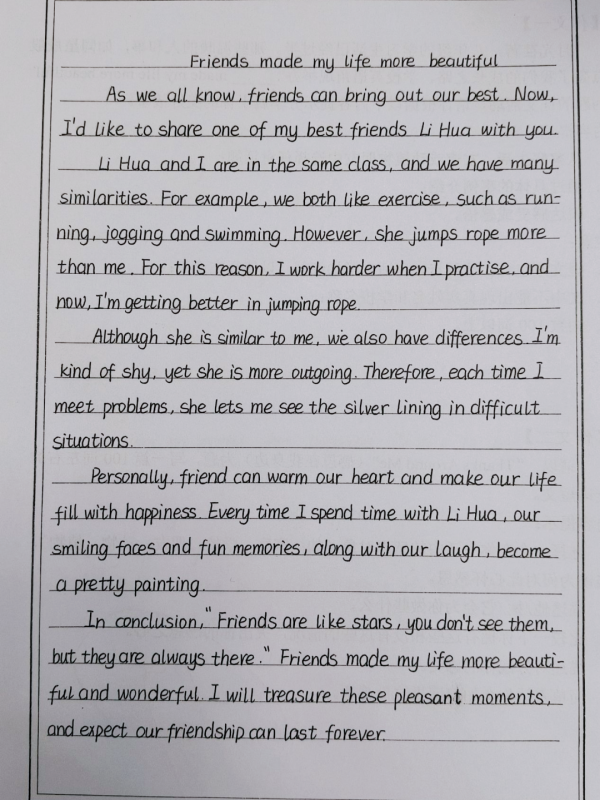 Friends made my life more beautiful
As we all know, friends can bring out our best. Now,
I'd like to share one of my best friends Li Hua with you.
Li Hua and I are in the same class, and we have many
similarities. For example, we both like exercise, such as run-
ning, jogging and swimming. However, she jumps rope more
than me. For this reason, I work harder when I practise, and
now, I'm getting better in jumping rope.
Although she is similar to me, we also have differences. I'm
kind of shy, yet she is more outgoing. Therefore, each time I
meet problems, she lets me see the silver lining in difficult
situations.
Personally, friend can warm our heart and make our life
fill with happiness. Every time I spend time with Li Hua, our
smiling faces and fun memories, along with our laugh, become
a pretty painting.
In conclusion, "Friends are like stars, you don't see them,
but they are always there." Friends made my life more beauti-
ful and wonderful. I will treasure these pleasant moments,
and expect our friendship can last forever.